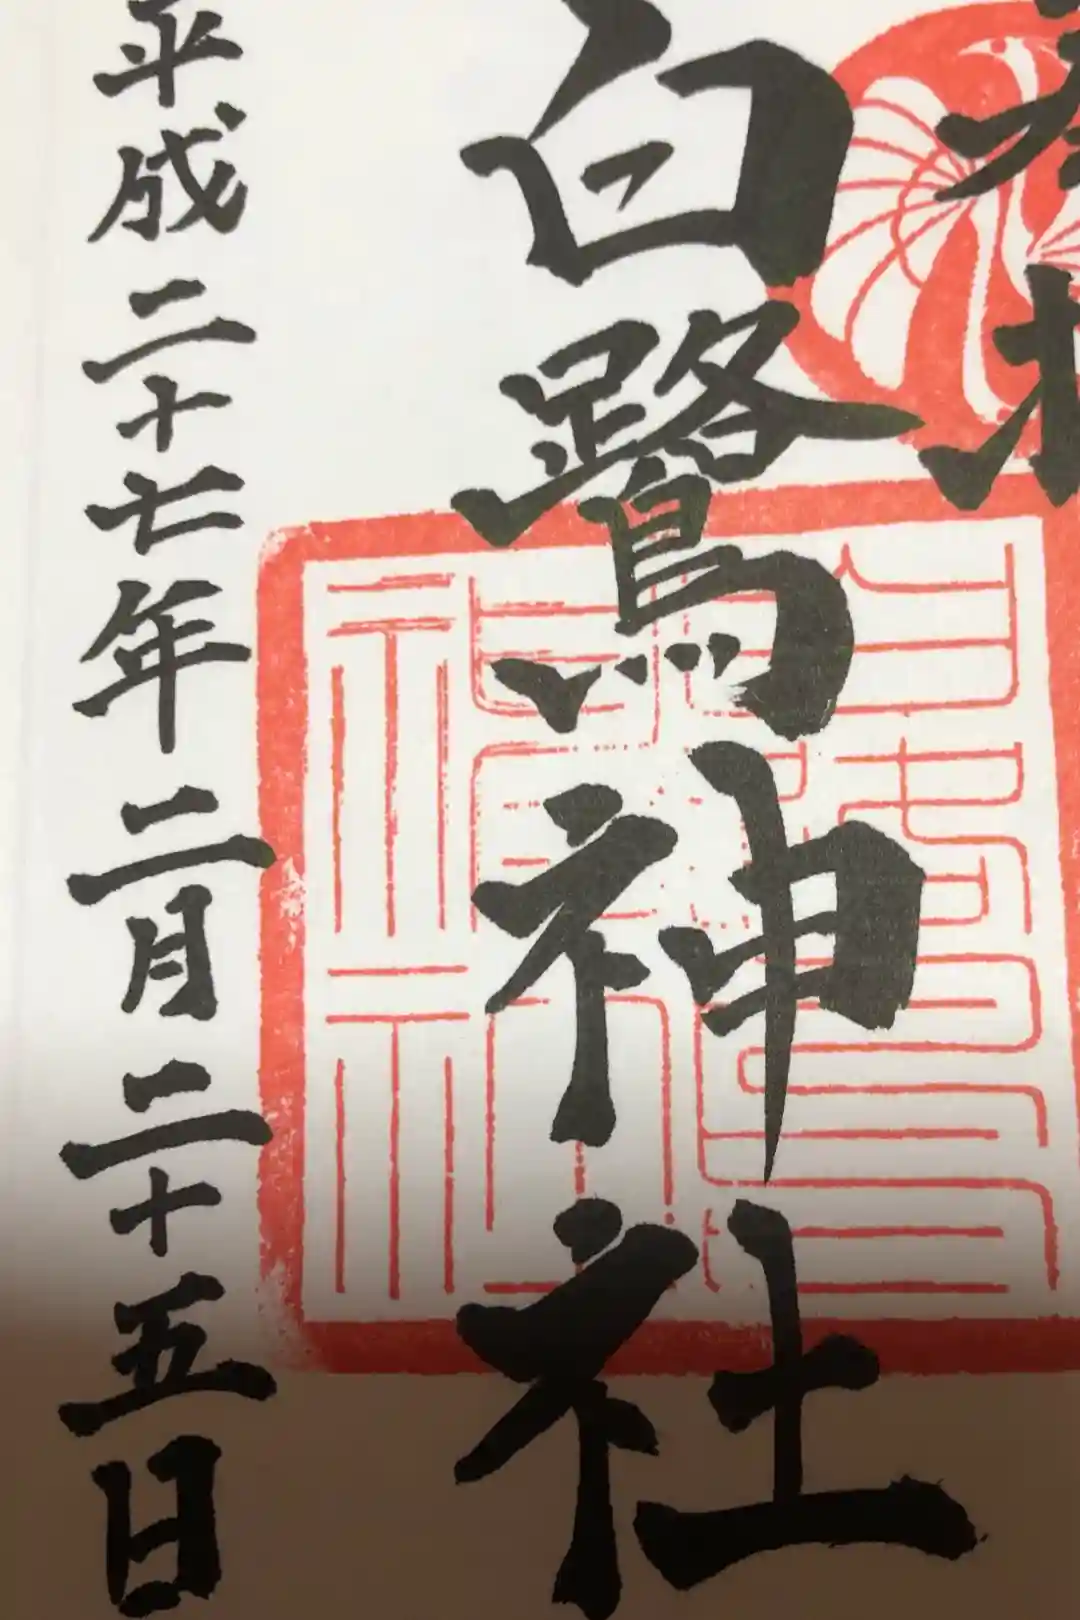 奉拝
白鷺神社
平成二十七年二月二十五日
白鷺神社